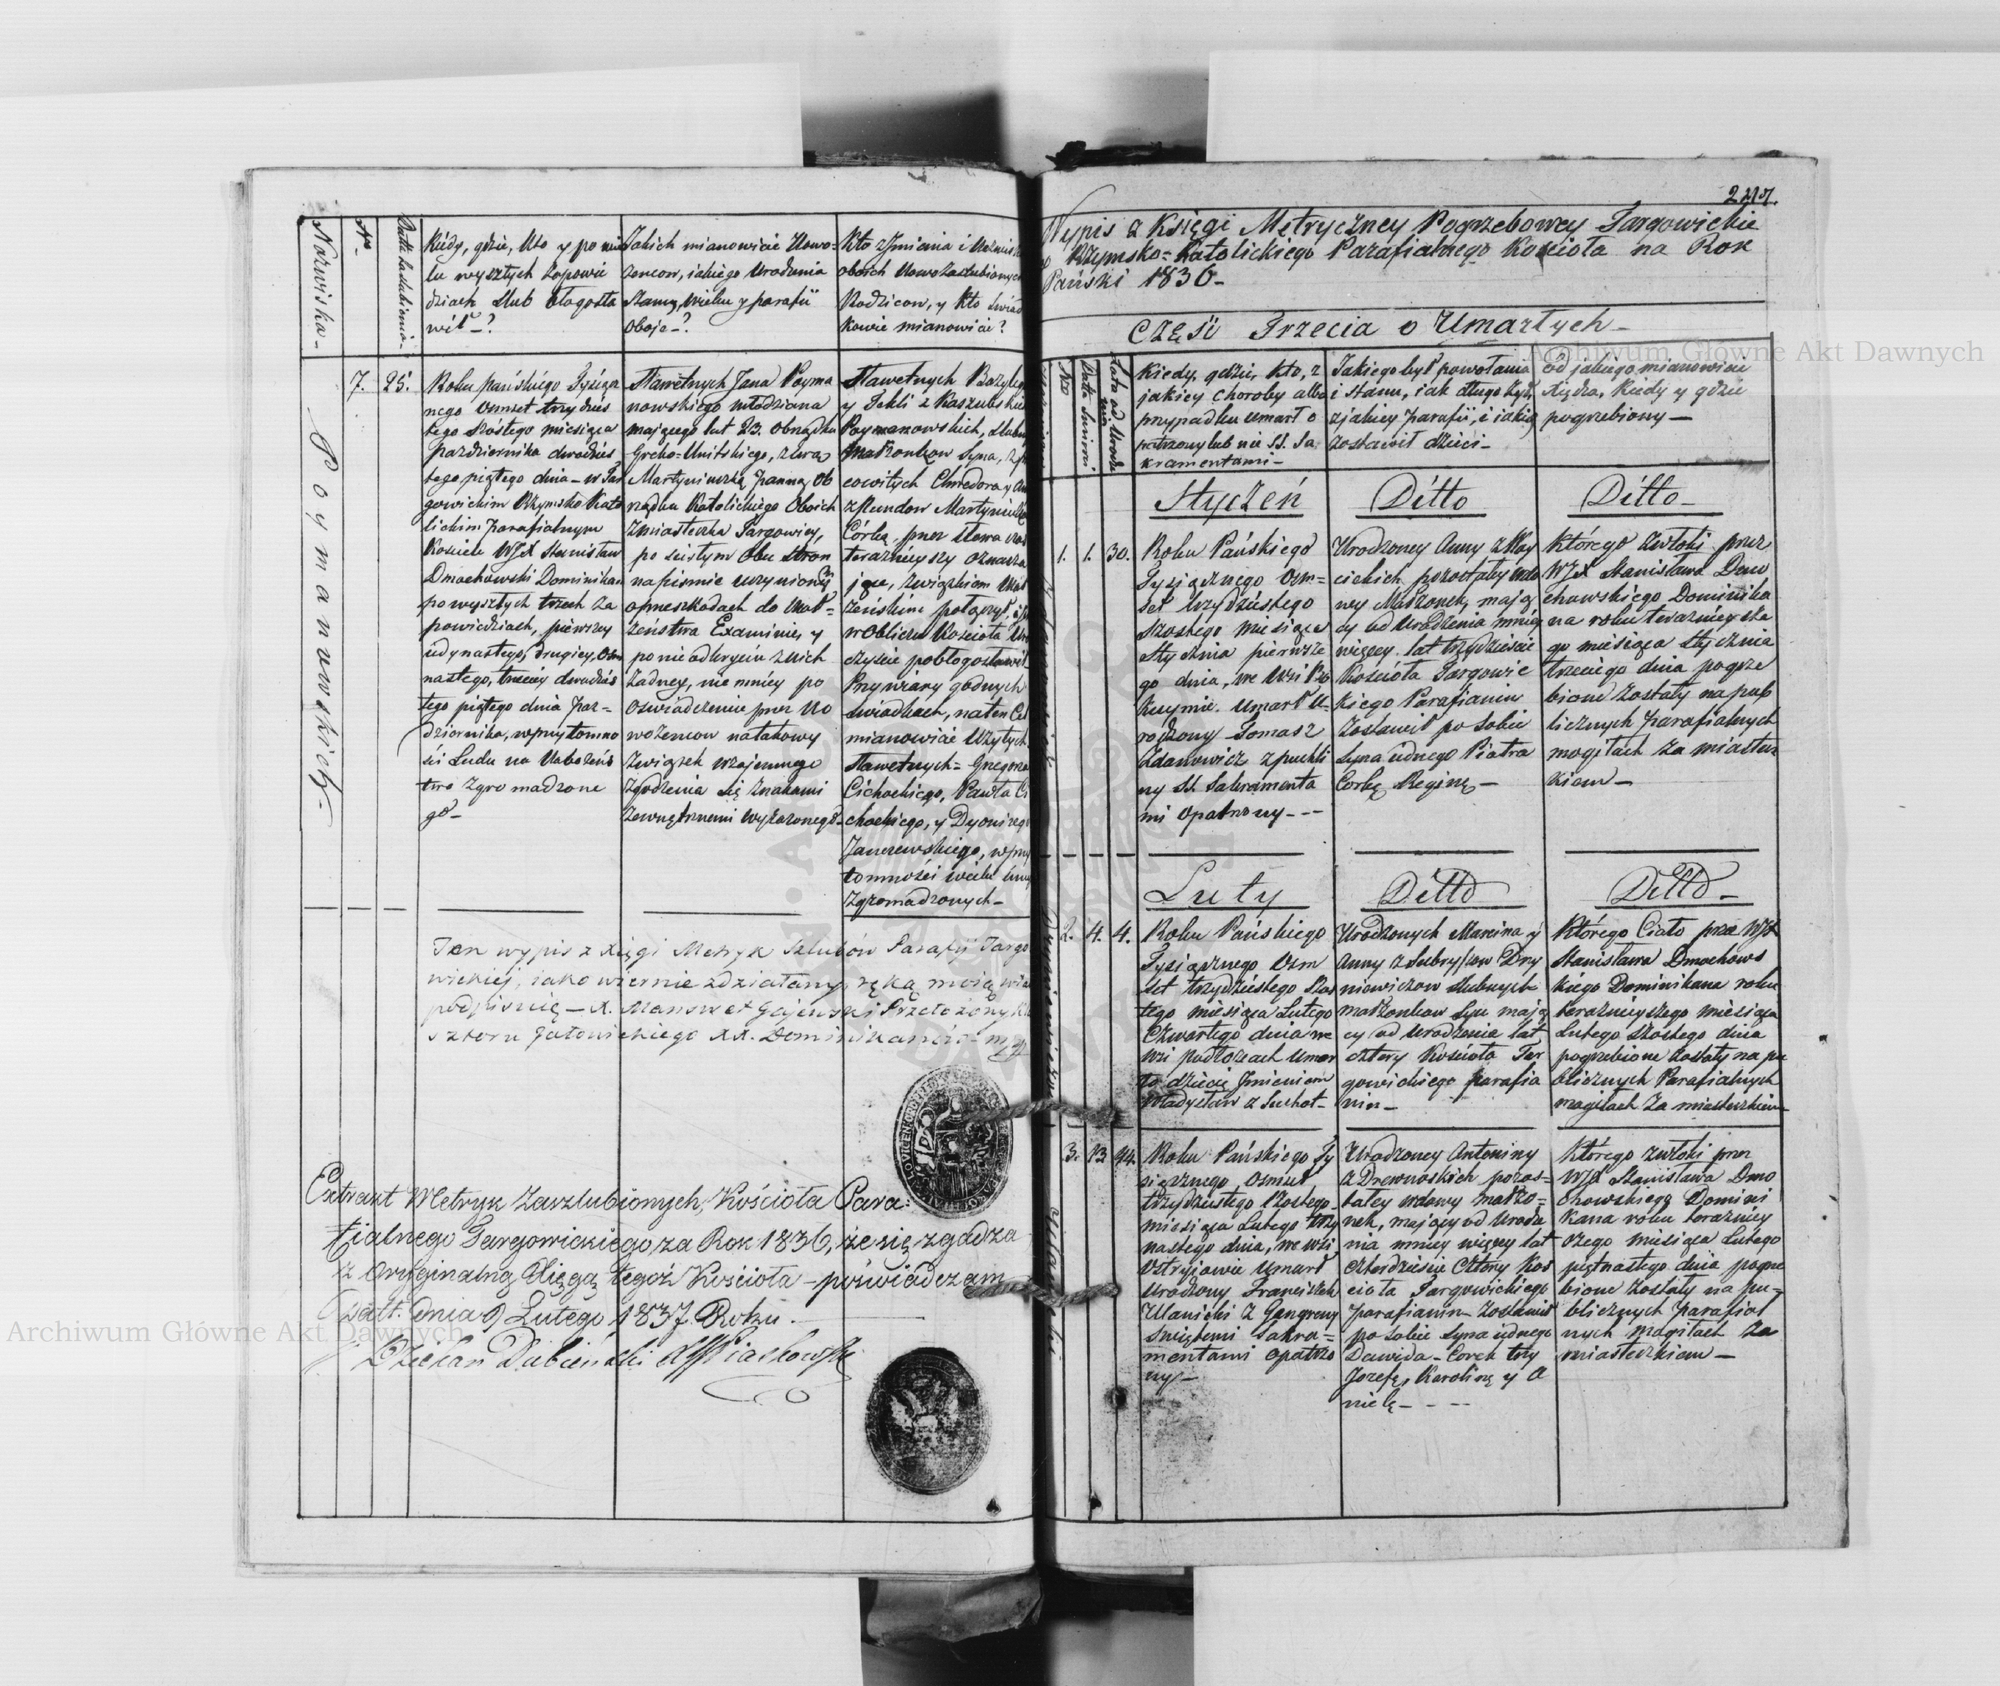 Nazwiska-
Nro
Datta Zaślubienia-
Kiedy, gdzie, Kto y po wie
lu wyszłych Zapowie
dziach Slub błagosła
wił-?
Jakich mianowicie Nowo-
żencow, iakiego Urodzenia
Stanu, wieku y parafii
oboje-?
Kto z Jmienia i Nazwiska
oboich Nowozaslubionych
Rodzicow, y Kto świad
kowie mianowicie?
Poymanowskich-
7.
25.
Roku pańskiego Tysiącz
nego Osmset trzydzies
tego Szóstego miesiąca
października dwadzies
tego piątego dnia- w Tar
gowickim Rzymsko Kato
lickim parafialnym
Kościele WJX Stanisław
Dmochowski Dominikan
po wyszłych trzech Za
powiedziach, pierwszey
iedynastego, drugiey, Osm
nastego, trzeciey dwudzies
tego piątego dnia Paz-
dziernika, w przytomno
ści Ludu na Nabożeńs
two Zgromadzone
go-
Sławetnych Jana Poyma
nowskiego młodziana
maiącego lat 23. obrządku
Greko-Unitskiego, z
Martyniuską Panną Ob
rządku Katolickiego Oboich
z miasteczka Targowicy,
po scisłym Obu Stron
na pismie uczynionym
o przeszkodach do Mał-
żeństwa Examinie, y
po nie odkryciu z nich
żadney, nie mniey po
Oswiadczeniu przez No
wożencow na takowy
Zwiąsek wzajemnego
Zgodzenia się Znakami
Zewnętrznemi wyrażonego-
Sławetnych Bazylego
y Tekli z Kaszubskich
Poymanowskich, slubn
małżonkow Syna, z p
cowitych Chwedora y An
z Rundow Martyniuk
Córkę, przez Słowa czas
teraźnieyszy oznacza
jące, Związkiem Mał
żeńskim połączył, i
w Obliczu Kościoła Uro
czyście pobłogosławił
Przy wiary godnych
Swiadkach, na ten Cel
mianowicie Użytych
Sławetnych- Gregorza
Cichockiego, Pawła Ci
chockiego, y Dyonizego
Janczewskiego, w przy
tomności wielu innych
Zgromadzonych-
Ten wypis z Xięgi Metryk Szlubów Parafii Targo
wickiej, iako wiernie zdziałany, ręką moią włas
podpisuię- X. Manswet Gajewski Przełożony Kla
sztoru Jałowickiego XX. Dominikanów mp
Extrakt Metryk Zaszlubionych, Kościoła Para:
fialnego Targowickiego za Rok 1836, że się zgadza
z Oryginalną Xięgą tegoż Kościoła- poświadczam
Datt: Dnia 9 Lutego 1837 Roku.
Dziekan Dubieński
227.
Wypis z Księgi Metryczney Pogrzebowey Targowickie
go Rzymsko-Katolickiego Parafialnego Kościoła na Rok
Pański 1836-
Część Trzecia o Umarłych-
Nro
Datta Smierci
Lata od Urodze
nia
Kiedy, gdzie, kto, z
jakiey choroby albo
przypadku umarł o
patrzony lub nie SS. Sa
kramentami-
Jakiego był powołania
i stanu, iak długo żył,
z jakiey parafii, i iakie
zostawił dzieci-
Od jakiego mianowicie
Xiędza, Kiedy y gdzie
pogrzebiony-
Styczeń
Ditto
Ditto-
1.
1.
30.
Roku Pańskiego
Tysiącznego Osm-
set trzydziestego
Szostego miesiąca
Stycznia pierwsze
go dnia, we Wsi Po
Umarł U-
rodzony Tomasz
Zdanowicz z puchli
ny SS. Sakramenta
mi opatrzony---
Urodzoney Anny z Way
cickich pozostały wdo
wy Małżonek, mają
cy od Urodzenia mniey
więcey lat trzydzieście
Kościoła Targowic
kiego Parafianin
Zostawił po Sobie
Syna iednego Piotra
Corkę Reginę-
Którego zwłoki przez
WJX Stanisława Dmo
chowskiego Dominika
na roku teraźnieysze
go miesiąca Stycznia
trzeciego dnia pogrze
bione zostały na pub
licznych parafialnych
mogiłach za miastecz
kiem-
Luty
Ditto
Ditto-
2.
4.
4.
Roku Pańskiego
Tysiącznego Osm
set trzydziestego Szos
tego miesiąca Lutego
Czwartego dnia we
wsi podłozcach umar
ło dziecię Jmieniem
Władysław z Suchot-
Urodzonych Marcina y
Anny z Dmy
niewiczow slubnych
małżonkow Syn mają
cy od urodzenia lat
cztery Kościoła Tar
gowickiego parafia
nin-
Którego Ciało przez WJX
Stanisława Dmochows
kiego Dominikana roku
teraźnieyszego miesiąca
Lutego szóstego dnia
pogrzebione zostały na pu
blicznych Parafialnych
mogiłach za miasteczkiem-
3.
13
44.
Roku Pańskiego Ty
siącznego, Osmset
trzydziestego Szostego
miesiąca Lutego trzy
nastego dnia, we wsi
Ostryjowie umarł
Urodzony Franciszek
Ulanicki z Gangreny
Swiętemi Sakra-
mentami opatrzo
ny-
Urodzoney Antoniny
z Drewnoskich pozos-
tałey wdowy małżo-
nek, mający od Urodze
nia mniey więcey lat
Czterdzieście Cztery Koś
cioła Targowickiego
parafianin- zostawił
po sobie Syna iednego
Dawida- Corek trzy
Jozefę, Karolinę y A
nielę- - --
Którego zwłoki przez
WJX Stanisława Dmo
chowskiego Domini
kana roku teraźniey
szego miesiąca Lutego
piętnastego dnia pogrze
bione zostały na pu-
blicznych parafial
nych mogiłach za
miasteczkiem-
Archiwum Główne Akt Dawnych
Archiwum Główne Akt Dawnych